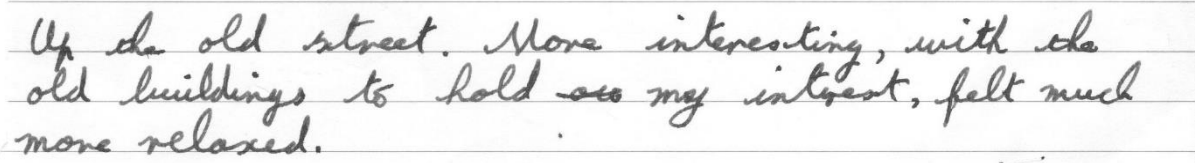 Up the old street. More interesting, with the
old buildings to hold my interest, felt much
more relaxed.